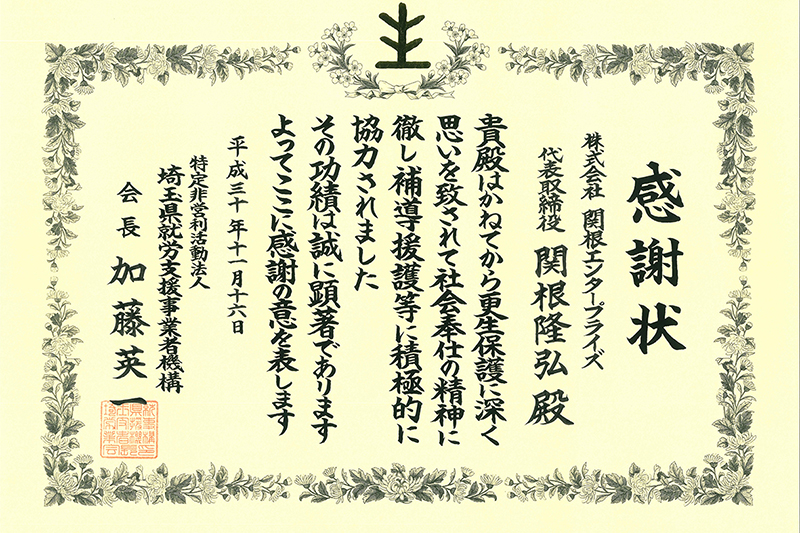 感謝状
株式会社 関根エンタープライズ
代表取締役 関根隆弘殿
貴殿はかねてから更生保護に深く
思いを致されて社会奉仕の精神に
徹し補導援護等に積極的に
協力されました
その功績は誠に顕著であります
よってここに感謝の意を表します
平成三十年十一月十六日
特定非営利活動法人
埼玉県就労支援事業者機構
会長 加藤英一